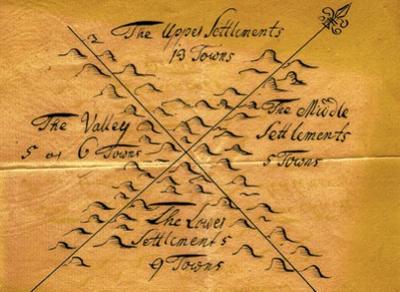 The Upper Settlements
13 Towns
The Valley
5 or 6 Towns
The Middle
Settlements
5 Towns
The Lower
Settlements
9 Towns